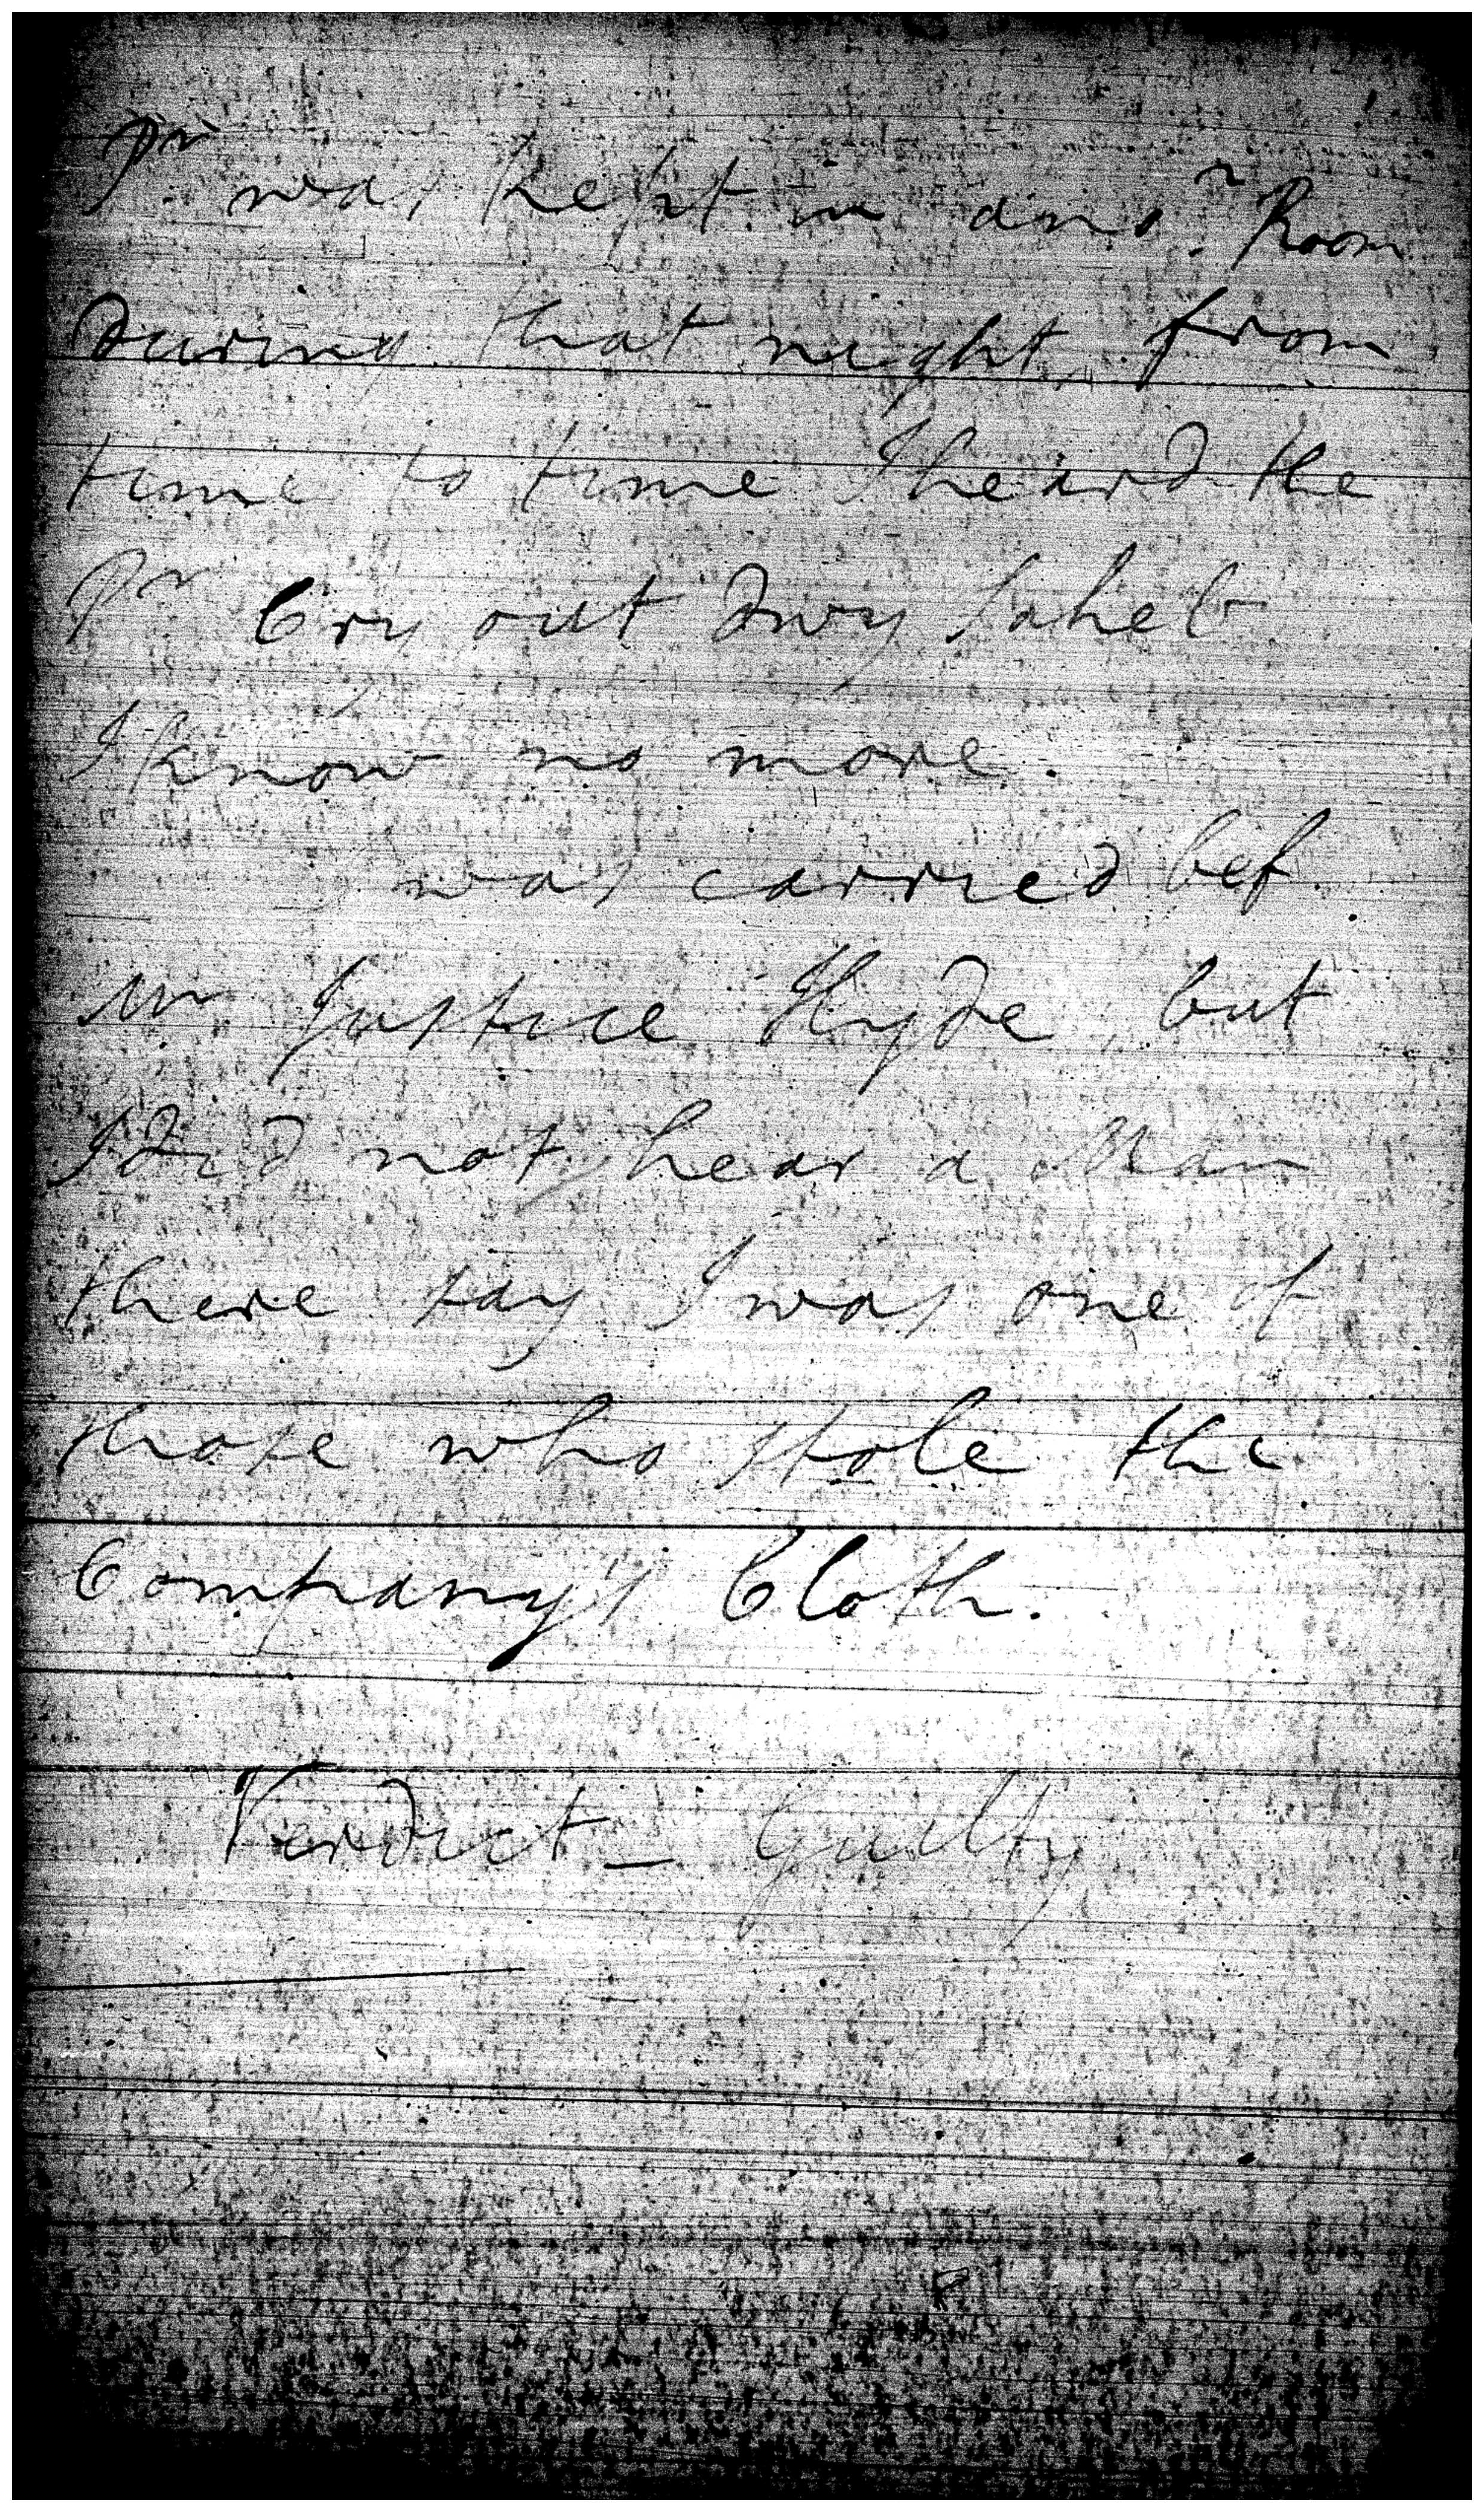 Pr was kept in anor Room
during that night, from
time to time I heard the
Pr Cry out Dwy Saheb
I know no more.
was carried bef.
Mr Justice Hyde but
I did not hear a Man
there say I was one of
those who stole the
Company's Cloth.
Verdict _ Guilty